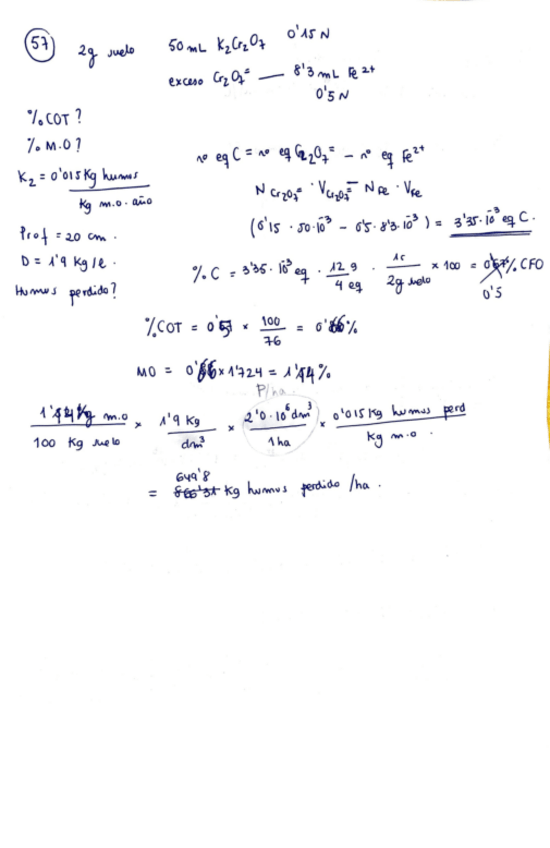 57 2g suelo 50 mL K2Cr2O7 0'15 N
exceso Cr2O7= — 8'3 mL Fe2+
0'5 N
% COT?
% M.O?
K2 = 0'015 Kg humus / Kg m.o. año
Prof = 20 cm.
D = 1'9 Kg/e.
Humus perdido?
nº eq C = nº eq Cr2O7= - nº eq Fe2+
N Cr2O7= · V Cr2O7= - N Fe · V Fe
(0'15 · 50·10-3 - 0'5 · 8'3·10-3) = 3'35·10-3 eq C.
% C = 3'35·10-3 eq · 12 g / 4 eq · 1c / 2g suelo × 100 = % CFO
0'5
% COT = 0'5 × 100 / 76 = 0'66%
MO = 0'66 × 1'724 = 1'14%
P/ha
1'14 Kg m.o / 100 Kg suelo × 1'9 Kg / dm3 × 2'0·10^6 dm3 / 1 ha × 0'015 Kg humus perd / Kg m.o.
649'8
= Kg humus perdido /ha.